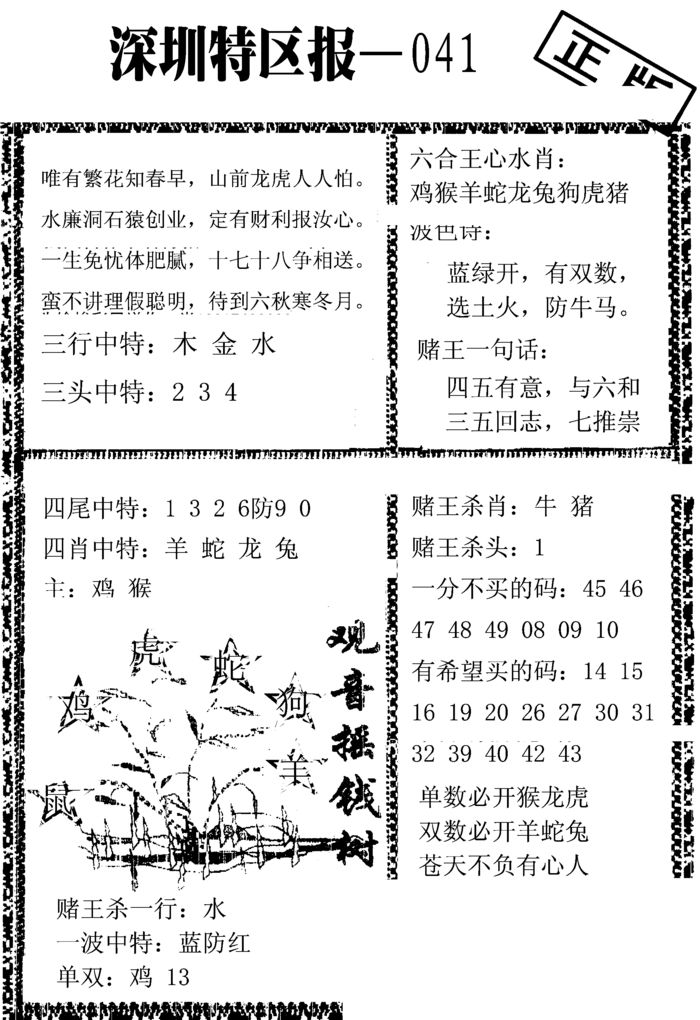 深圳特区报—041
正版
唯有繁花知春早，山前龙虎人人怕。
水廉洞石猿创业，定有财利报汝心。
一生免忧体肥腻，十七十八争相送。
蛮不讲理假聪明，待到六秋寒冬月。
三行中特：木 金 水
三头中特：2 3 4
六合王心水肖：
鸡猴羊蛇龙兔狗虎猪
波色诗：
蓝绿开，有双数，
选土火，防牛马。
赌王一句话：
四五有意，与六和
三五回志，七推崇
四尾中特：1 3 2 6防9 0
四肖中特：羊 蛇 龙 兔
主：鸡 猴
观音摇钱树
虎
蛇
鸡
狗
羊
鼠
赌王杀一行：水
一波中特：蓝防红
单双：鸡 13
赌王杀肖：牛 猪
赌王杀头：1
一分不买的码：45 46
47 48 49 08 09 10
有希望买的码：14 15
16 19 20 26 27 30 31
32 39 40 42 43
单数必开猴龙虎
双数必开羊蛇兔
苍天不负有心人